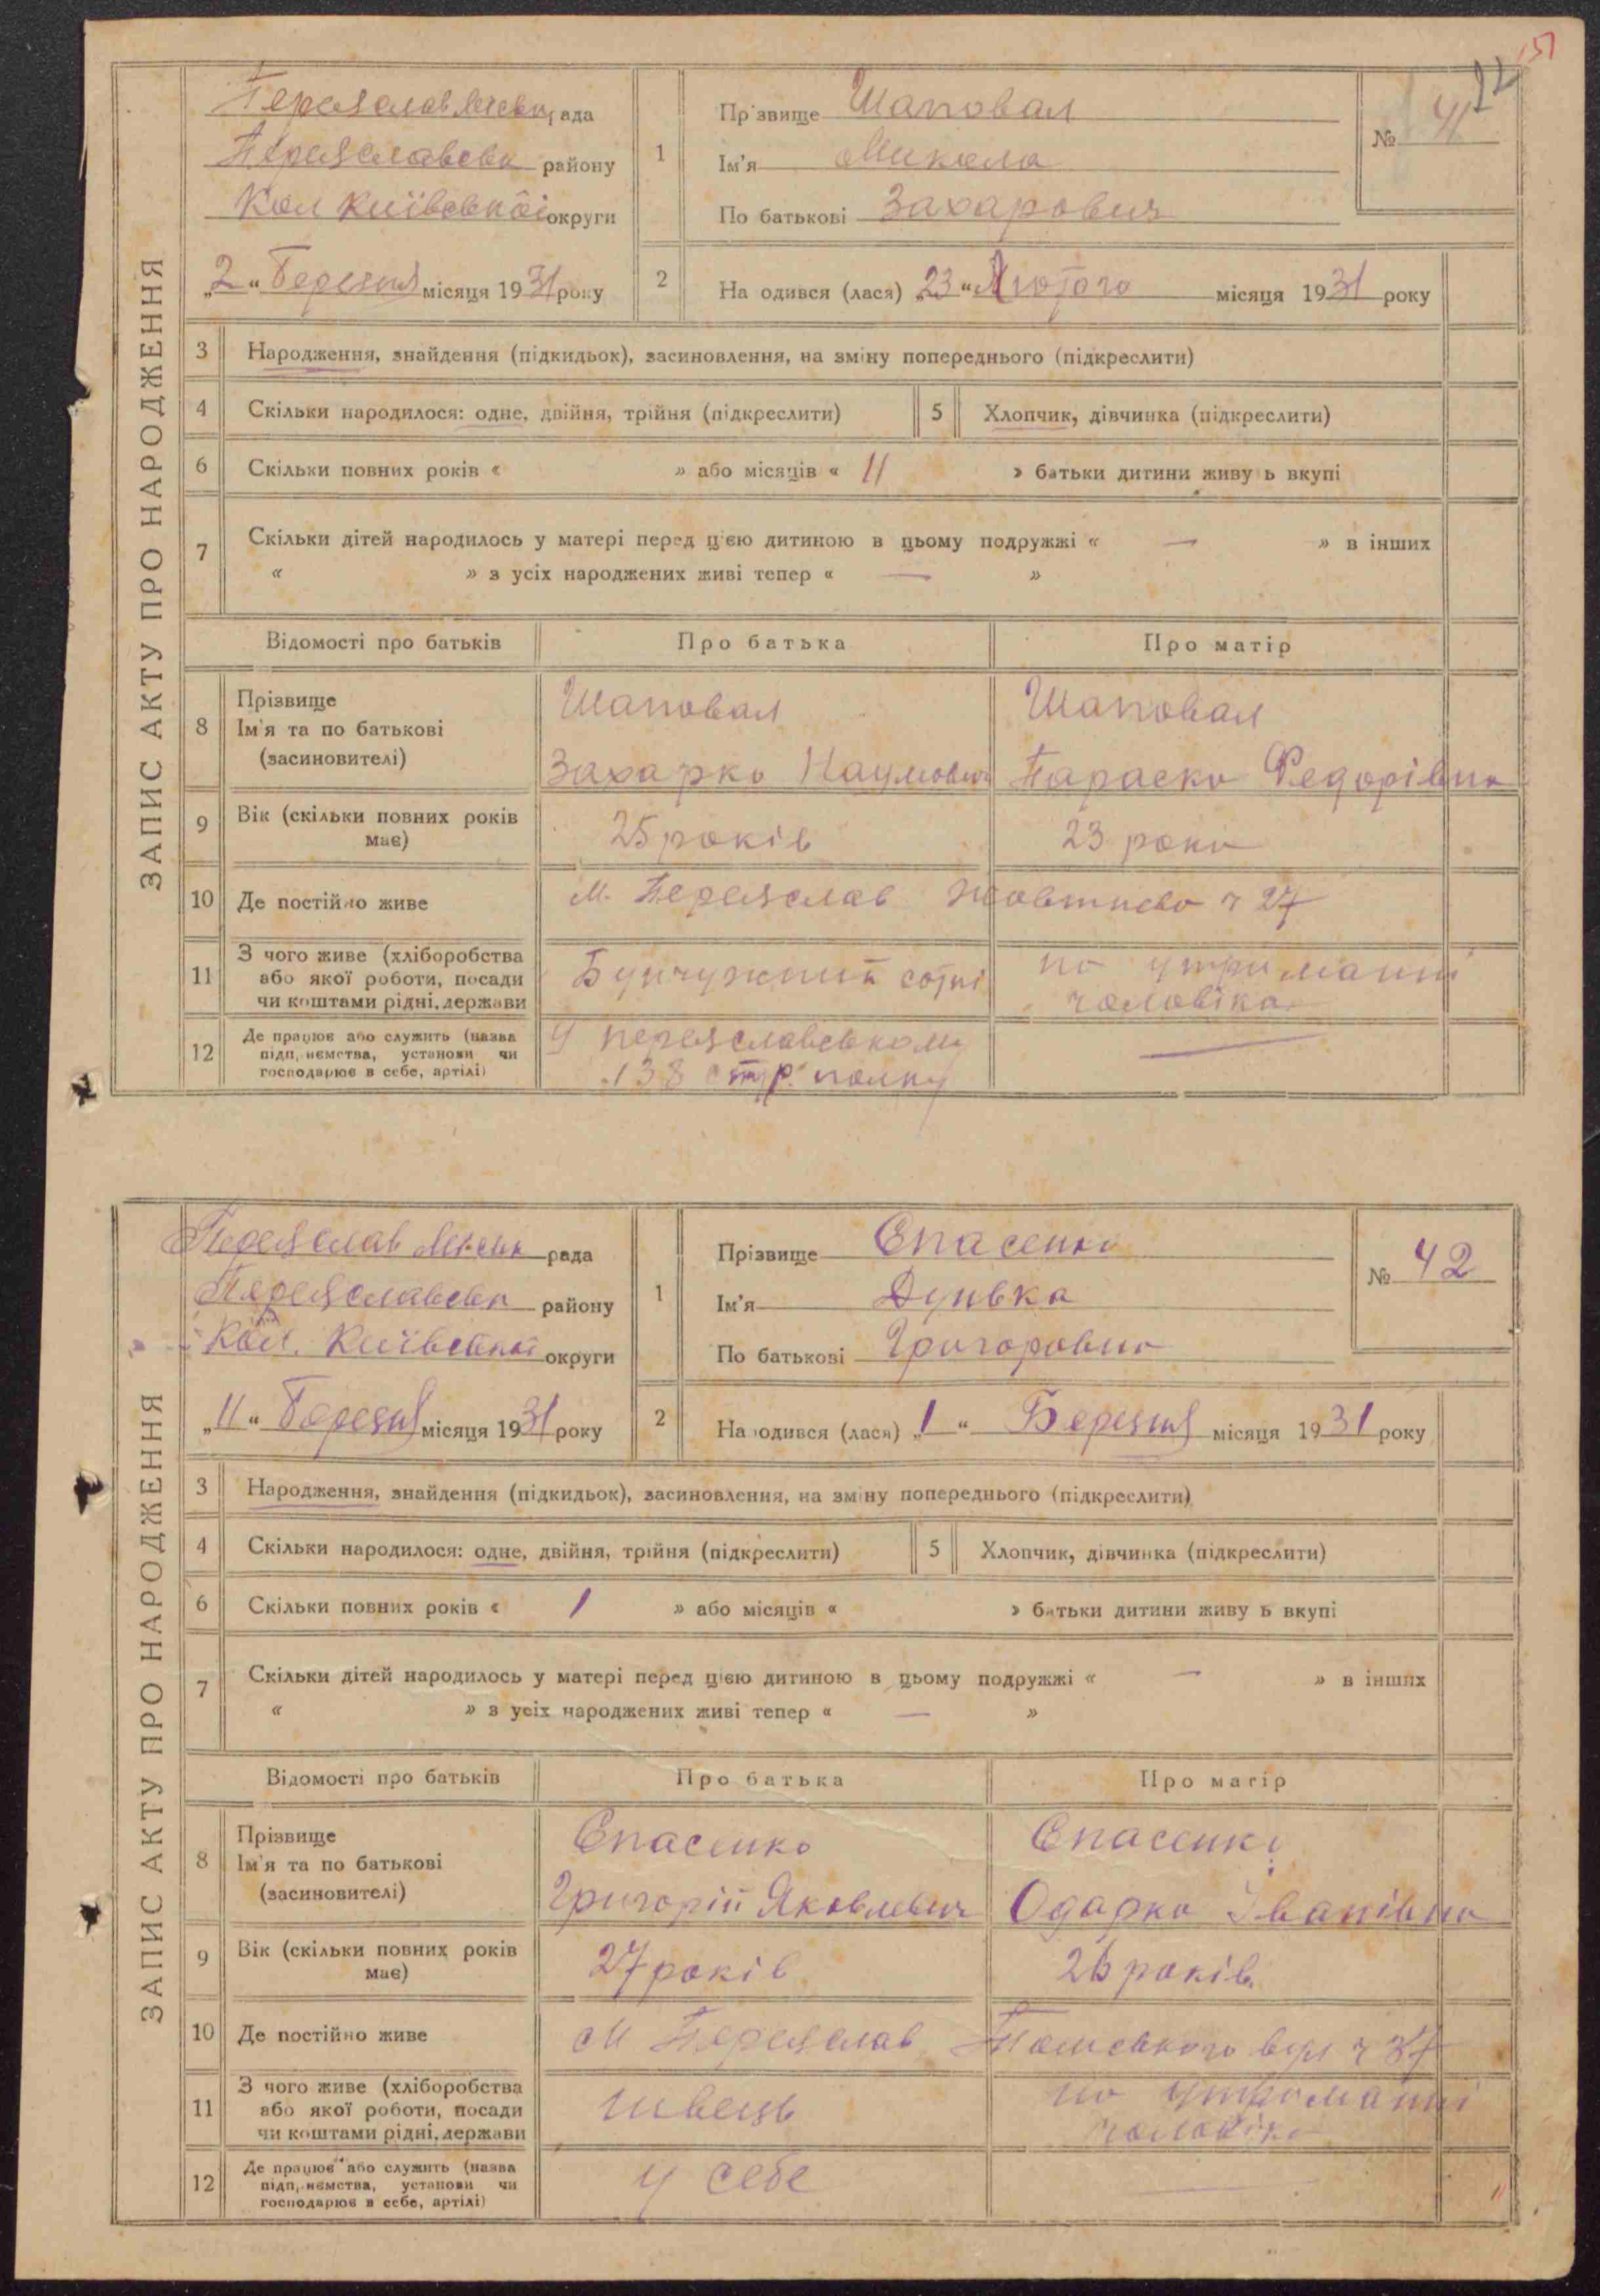 151
22
ЗАПИС АКТУ ПРО НАРОДЖЕННЯ
Переяслав рада
Переяславськ району
Кол Київської округи
„2“ Березня місяця 1931 року
1
Прізвище Шаповал
Ім'я Микола
По батькові Захарович
№ 41
2 На одився (лася) „23“ Лютого місяця 1931 року
3 Народження, знайдення (підкидьок), засиновлення, на зміну попереднього (підкреслити)
4 Скільки народилося: одне, двійня, трійня (підкреслити) 5 Хлопчик, дівчинка (підкреслити)
6 Скільки повних років « » або місяців « 11 » батьки дитини живу ь вкупі
7 Скільки дітей народилось у матері перед цією дитиною в цьому подружжі « — » в інших
« » з усіх народжених живі тепер « — »
Відомості про батьків Про батька Про матір
8 Прізвище
Ім'я та по батькові
(засиновителі)
Шаповал
Захарко Наумович
Шаповал
Параска Федорівна
9 Вік (скільки повних років
має)
25 років 23 роки
10 Де постійно живе м. Переяслав Жовтнева ч 27
11 З чого живе (хліборобства
або якої роботи, посади
чи коштами рідні, держави
Бунчужний сотні
на утриманні
чоловіка
12 Де працює або служить (назва
підп, иємства, установи чи
господарює в себе, артілі)
У переяславському
138 стр. полку
—
ЗАПИС АКТУ ПРО НАРОДЖЕННЯ
Переяслав рада
Переяславськ району
Кол. Київської округи
„11“ Березня місяця 1931 року
1
Прізвище Спасенко
Ім'я Дунька
По батькові Григоровна
№ 42
2 На одився (лася) „1“ Березня місяця 1931 року
3 Народження, знайдення (підкидьок), засиновлення, на зміну попереднього (підкреслити)
4 Скільки народилося: одне, двійня, трійня (підкреслити) 5 Хлопчик, дівчинка (підкреслити)
6 Скільки повних років « 1 » або місяців « » батьки дитини живу ь вкупі
7 Скільки дітей народилось у матері перед цією дитиною в цьому подружжі « — » в інших
« » з усіх народжених живі тепер « — »
Відомості про батьків Про батька Про матір
8 Прізвище
Ім'я та по батькові
(засиновителі)
Спасенко
Григорій Яковлевич
Спасенко
Одарка Іванівна
9 Вік (скільки повних років
має)
27 років 26 років
10 Де постійно живе м Переяслав ч 37
11 З чого живе (хліборобства
або якої роботи, посади
чи коштами рідні, держави
швець
на утриманні
чоловіка
12 Де працює або служить (назва
підп, иємства, установи чи
господарює в себе, артілі)
у себе
—